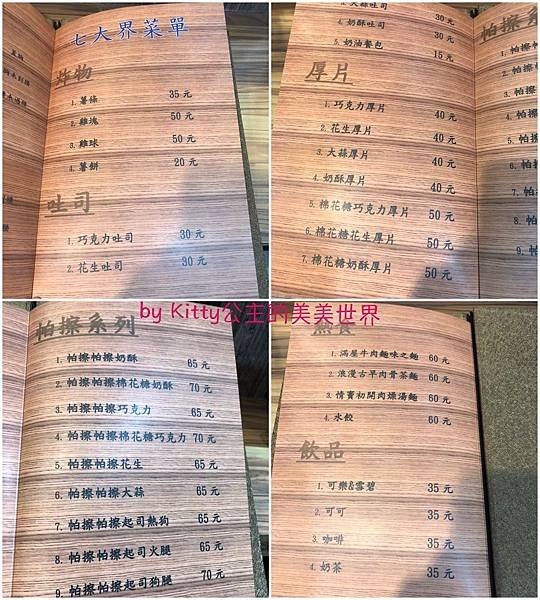 七大界菜單
炸物
1. 薯條 35 元
2. 雞塊 50 元
3. 雞球 50 元
4. 薯餅 20 元
吐司
1. 巧克力吐司 30 元
2. 花生吐司 30 元
3. 大蒜吐司 30 元
4. 奶酥吐司 30 元
5. 奶油餐包 15 元
厚片
1. 巧克力厚片 40 元
2. 花生厚片 40 元
3. 大蒜厚片 40 元
4. 奶酥厚片 40 元
5. 棉花糖巧克力厚片 50 元
6. 棉花糖花生厚片 50 元
7. 棉花糖奶酥厚片 50 元
by Kitty公主的美美世界
帕擦系列
1. 帕擦帕擦奶酥 65 元
2. 帕擦帕擦棉花糖奶酥 70 元
3. 帕擦帕擦巧克力 65 元
4. 帕擦帕擦棉花糖巧克力 70 元
5. 帕擦帕擦花生 65 元
6. 帕擦帕擦大蒜 65 元
7. 帕擦帕擦起司熱狗 65 元
8. 帕擦帕擦起司火腿 65 元
9. 帕擦帕擦起司狗腿 70 元
熱食
1. 滿屋牛肉麵味之麵 60 元
2. 浪漫古早肉骨茶麵 60 元
3. 情竇初開肉燥湯麵 60 元
4. 水餃 60 元
飲品
1. 可樂&雪碧 35 元
2. 可可 35 元
3. 咖啡 35 元
4. 奶茶 35 元